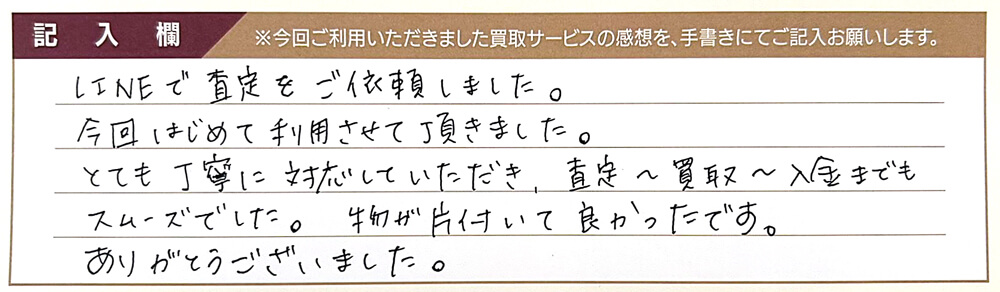 記入欄
※今回ご利用いただきました買取サービスの感想を、手書きにてご記入お願いします。
LINEで査定をご依頼しました。
今回はじめて利用させて頂きました。
とても丁寧に対応していただき、査定〜買取〜入金までも
スムーズでした。物が片付いて良かったです。
ありがとうございました。